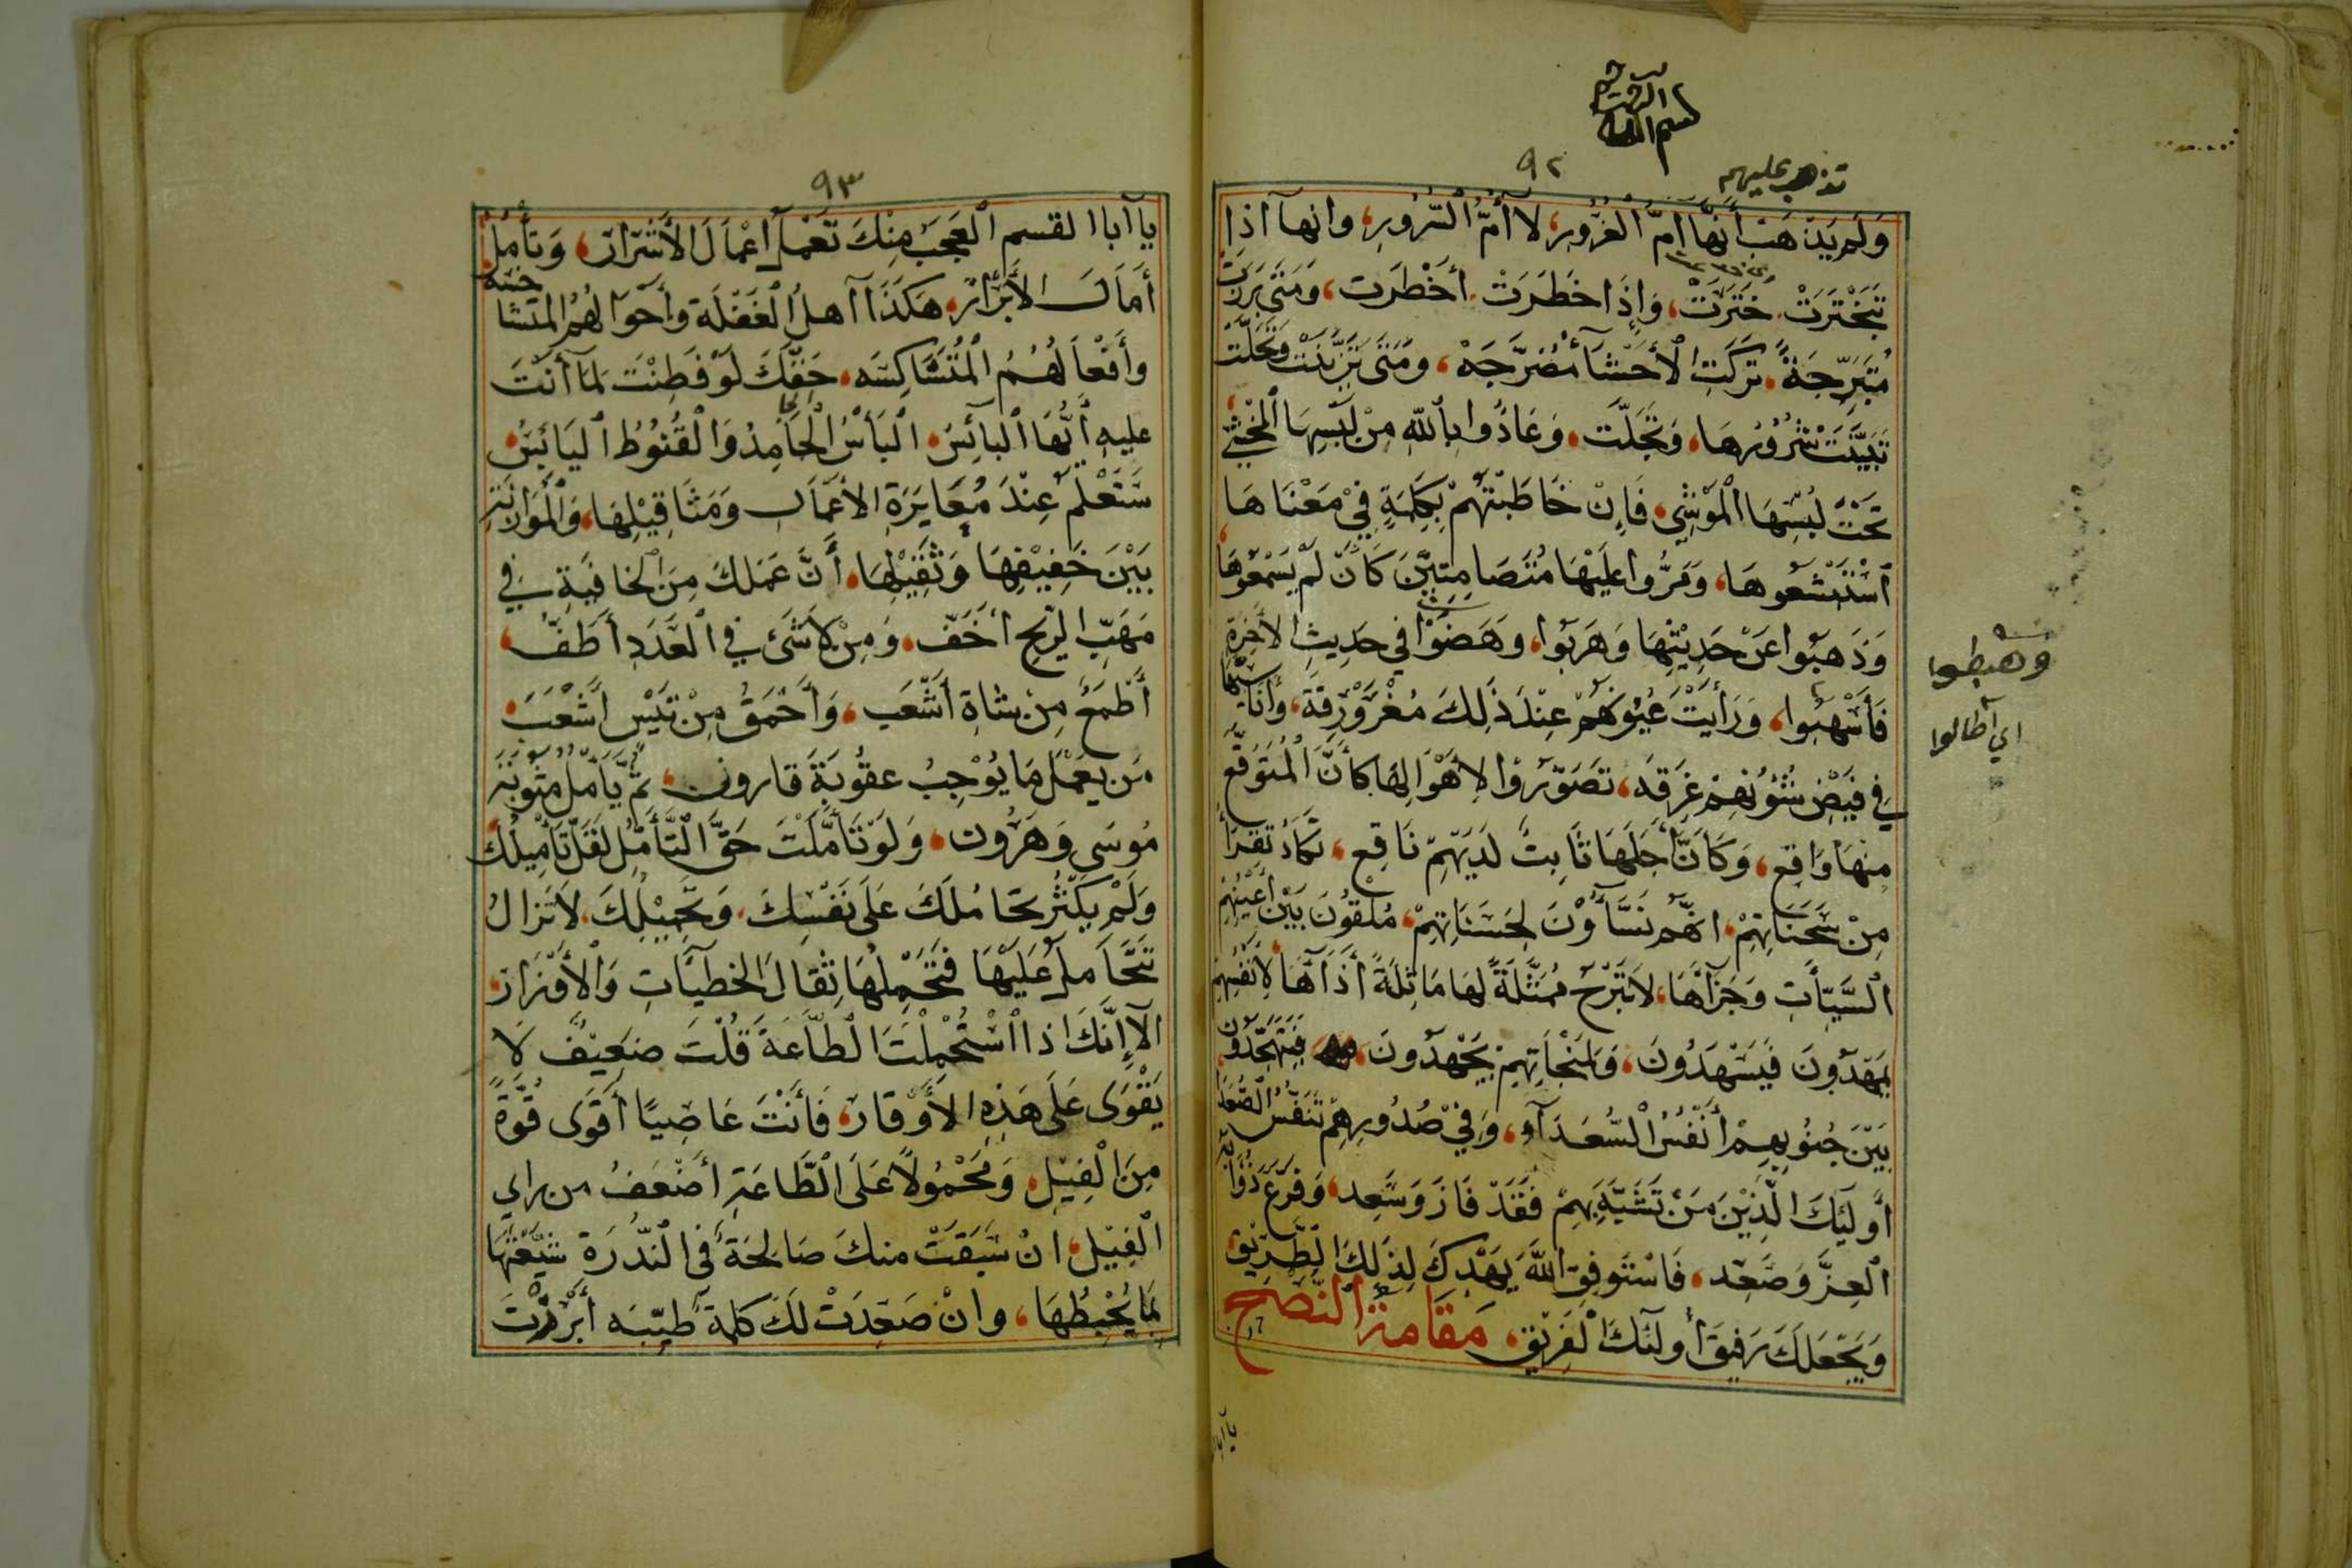 بسم الله الرحمن الرحيم
٩٢
تذهب عليهم
وَلَم يَذهَبْ أَنَّها أمُّ الْغُرُورِ، لا أُمُّ السُّرُورِ، وانها اذا
تَبَخْتَرَتْ خَتَرَتْ، وَإِذَا خَطَرَتْ أخْطَرَت، وَمَتَى بَرَزَتْ
مُتَبَرِّجَةً تَرَكَتِ الأحْشآءَ مُضَرَّجَهْ، وَمَتَى تَزَيَّنَتْ وَتَحَلَّتْ
تَبَيَّنَتْ شُرُوْرُهَا، وَتَجَلَّت، وَعَاذُوا بِاللهِ مِنْ
تَحْتَ لُبْسِهَا الْمَوْشِي، فَإِنْ خَاطَبْتَهُمْ بِكَلِمَةٍ فِيْ مَعْنَاهَا
اسْتَبْشَعُوهَا، وَمَرُّوا عَلَيْهَا مُتَصَامِتِيْنَ كَأَن لَمْ يَسْمَعُوها
وَذَهَبُوا عَنْ حَدِيْثِهَا وَهَرَبُوا، وَهَضَبُوا فِي حَدِيثِ الأخِرَةِ
وهبطوا
فَأَسْهَبُوا، وَرَأيَتْ عُيُونَهُمْ عِنْدَ ذَلِكَ مُغْرَوْرِقَة، وَأَنَاسِيَّها
اي اطالوا
فِي فَيْضِ شُئُونِهِمْ غَرِقَه، تَصَوّرُوا الأهْوَالَهَا كَأَنَّ الْمُتَوَقَّعَ
مِنْهَا وَاقِع، وَكَأَنَّ أجَلَهَا ثَابِتٌ لَدَيْهِمْ نَاقِع، تَكَادُ تَقْرَأُ
مِنْ سَحَنَاتِهِمْ، انهُم نَسَّآؤُنَ لِحَسَنَاتِهِمْ، مُلْقُونَ بَيْنَ أعْيُنِهِمْ
السَّيِّأتِ وَجَزَآءَهَا، لاَتَبْرَحُ مُمَثَّلَةً لَهَا مَاثِلَةً اذَآءَهَا لأَنْفُسِهِمْ
يَمْهَدُونَ فَيَسْهَدُونَ، وَلِنَجَاتِهِمْ يَجْهَدُونَ، فَيَتَهَجَّدُونَ
بَيْنَ جُنُوبِهِمْ أنْفُسُ السُّعَدَآءِ، وَفِيْ صُدُورِهِمْ تَنَفُّسُ الصُّعَدَا
أُولَئِكَ الَّذِيْنَ مَنْ تَشَبَّهَ بِهِمْ فَقَدْ فَازَ وَسَعِد، وَفَرَعَ ذُؤَابَةَ
الْعِزَّ وَصَعِد، فَاسْتَوفِقِ اللهَ يَهْدِكَ لِذَلِكَ الطَّرِيْقِ
وَيَجْعَلَكَ رَفِيقَ أولَئكَ الْفَرِيْقِ مَقَامَةُ النُّصْحِ
يا ابا
٩٣
يا أبا القسم الْعَجَبُ مِنْكَ تَعْمَلُ اعْمَالَ الأشْرَار، وَتأمُلُ
أَمَالَ الأَبْرَار، هَكَذَا اهلُ الْغَفْلَة وأحْوَالُهُمُ الْمُتَشَاخِسَه
وأَفْعَالُهُمُ الْمُتَشَاكِسَه، حَقُّكَ لَوْ فَطِنْتَ لِمَا أنْتَ
عليهِ أَيُّهَا الْبآئِسُ، الْيَأْسُ الْجَامِدُ وَالْقُنُوْطُ الْيَابِسُ
سَتَعْلَمُ عِنْدَ مُعَايَرَةِ الأعْمَالِ وَمَثَاقِيْلِهَا، وَالْمُوَازَنَةِ
بَيْنَ خَفِيْفِهَا وَثَقِيْلِهَا، أَنَّ عَمَلكَ مِنَ الخافِيَةِ فِي
مَهَبِّ الرّيحِ أخَفّ، وَمِنْ لاَشَئَ فِي الْعَدَدِ أطَفُّ،
أطْمَعُ مِنْ شاةِ أشْعَب، وَأحْمَقُ مِنْ تَيْسٍ أشْعَبَ
مَن يَعْمَلُ مَا يُوْجِبُ عقُوبَةَ قارون، ثُمَّ يَأمُلُ مَثُوْبَةَ
مُوسَى وَهَرُون، وَلَوْ تَأمَّلْتَ حَقَّ التَّأَمُّلِ لَقَلَّ تَأمِيلُكَ
وَلَمْ يَكْثُر تَحَامُلكَ عَلَى نَفْسِكَ وَتَحْمِيْلُكَ، لاَ تَزالُ
تَتَحَامَلُ عَلَيْهَا فَتَحْمِلُهَا ثِقالَ الخَطيآتِ وَالأوْزَار،
الآ إِنَّكَ اذا اسْتُحْمِلْتَ الطَّاعَةَ قُلْتَ ضَعِيْفٌ لا
يَقْوَى عَلَى هَذِهِ الأَوْقار، فَأَنْتَ عَاصِيًا أقْوَى قُوَّةً
مِنَ الْفِيْلِ، وَمَحْمُولاً عَلَى الطَّاعَةِ أضْعَفُ من راي
الْفِيْلِ، انْ سَبَقَتْ منكَ صَالِحَةٌ فِي النُّدْرَةِ شَيَّعْتَهَا
بِمَا يُحْبِطُهَا، وانْ صَعِدَتْ لَكَ كَلِمَة طَيّبَه أبْرَدْتَ